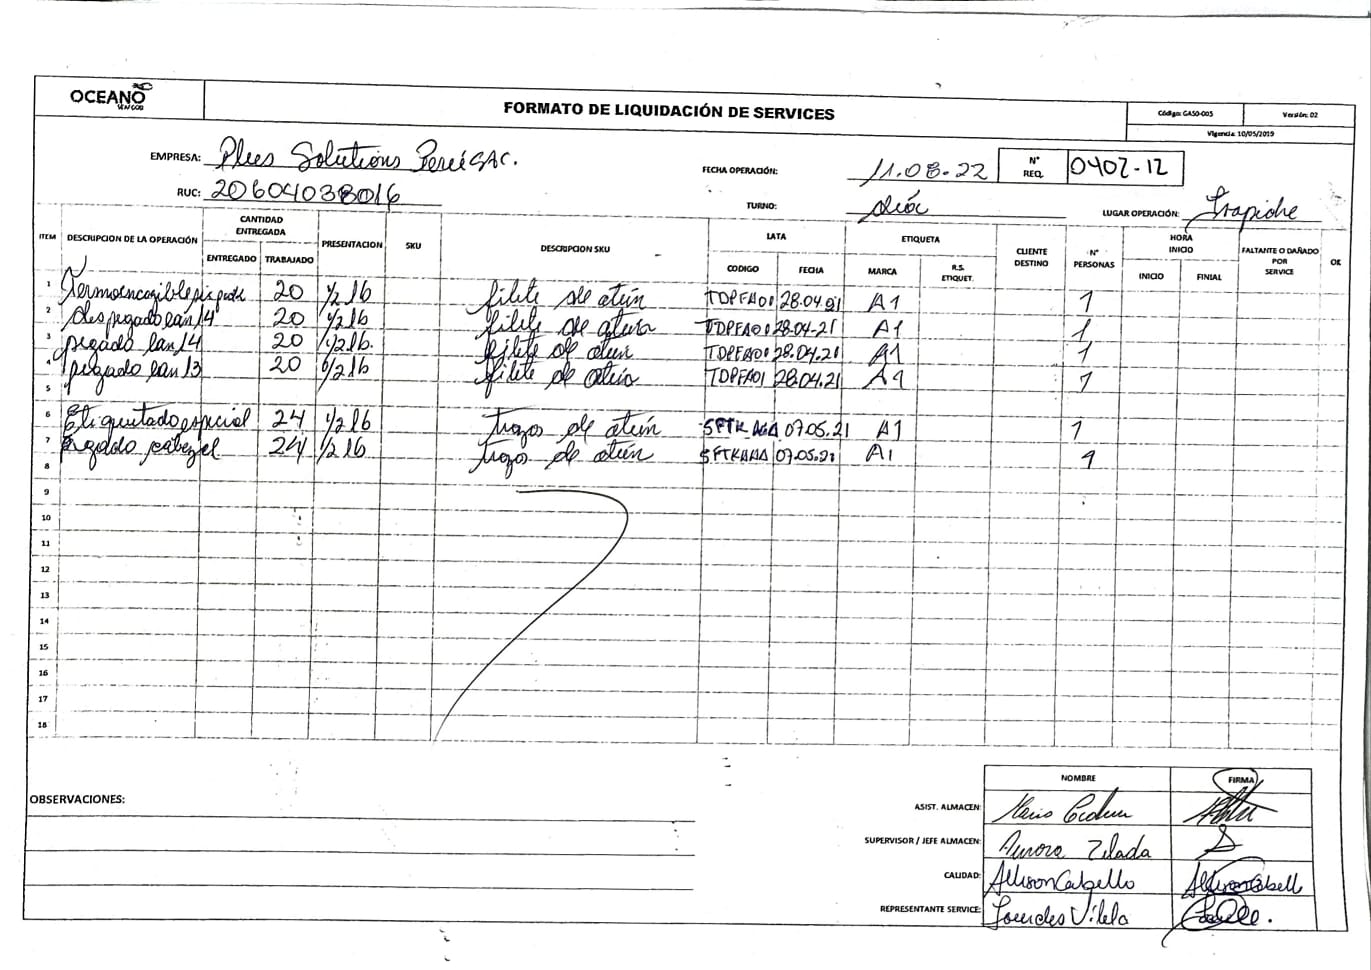 OCEANO
SEAFOOD
FORMATO DE LIQUIDACIÓN DE SERVICES
Código: GASO-005
Versión: 02
Vigencia: 10/05/2019
EMPRESA: Plus Solutions Perú SAC.
FECHA OPERACIÓN: 11.08.22
N° REQ. 0402-12
RUC: 20604038016
TURNO: Día
LUGAR OPERACIÓN: Trapiche
ITEM DESCRIPCION DE LA OPERACIÓN CANTIDAD ENTREGADA PRESENTACION SKU DESCRIPCION SKU LATA ETIQUETA CLIENTE DESTINO N° PERSONAS HORA INICIO FALTANTE O DAÑADO POR SERVICE OK
ENTREGADO TRABAJADO CODIGO FECHA MARCA R.S. ETIQUET. INICIO FINIAL
1 Termoencogible 20 1/2 lb filete de atún TDPFA01 28.04.21 A1 1
2 despegado lan 14 20 1/2 lb filete de atún TDPFA01 28.04-21 A1 1
3 pegado lan 14 20 1/2 lb. filete de atún TDPFA01 28.04.21 A1 1
4 pegado lan 13 20 1/2 lb filete de atún TDPFA01 28.04.21 A1 1
5
6 Etiquetado especial 24 1/2 lb trozos de atún 07.05.21 A1 1
7 pegado cabezel 24 1/2 lb trozos de atún 07.05.21 A1 1
8
9
10
11
12
13
14
15
16
17
18
OBSERVACIONES:
NOMBRE FIRMA
ASIST. ALMACEN:
SUPERVISOR / JEFE ALMACEN: Aurora Zelada
CALIDAD: Allison Cabello
REPRESENTANTE SERVICE: Lourdes Vilela